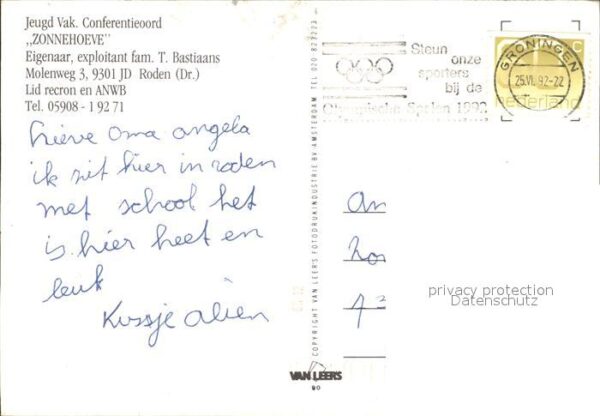 Jeugd Vak. Conferentieoord
„ZONNEHOEVE”
Eigenaar, exploitant fam. T. Bastiaans
Molenweg 3, 9301 JD Roden (Dr.)
Lid recron en ANWB
Tel. 05908 - 1 92 71
Lieve Oma angela
ik zit hier in roden
met school het
is hier heet en
leuk
Kussje alien
COPYRIGHT VAN LEER'S FOTODRUKINDUSTRIE BV AMSTERDAM TEL 020
VAN LEER'S
Steun
onze
sporters
bij de
Olympische Spelen 1992
GRONINGEN
25.VI.92-22
C
nederland
An
privacy protection
Datenschutz